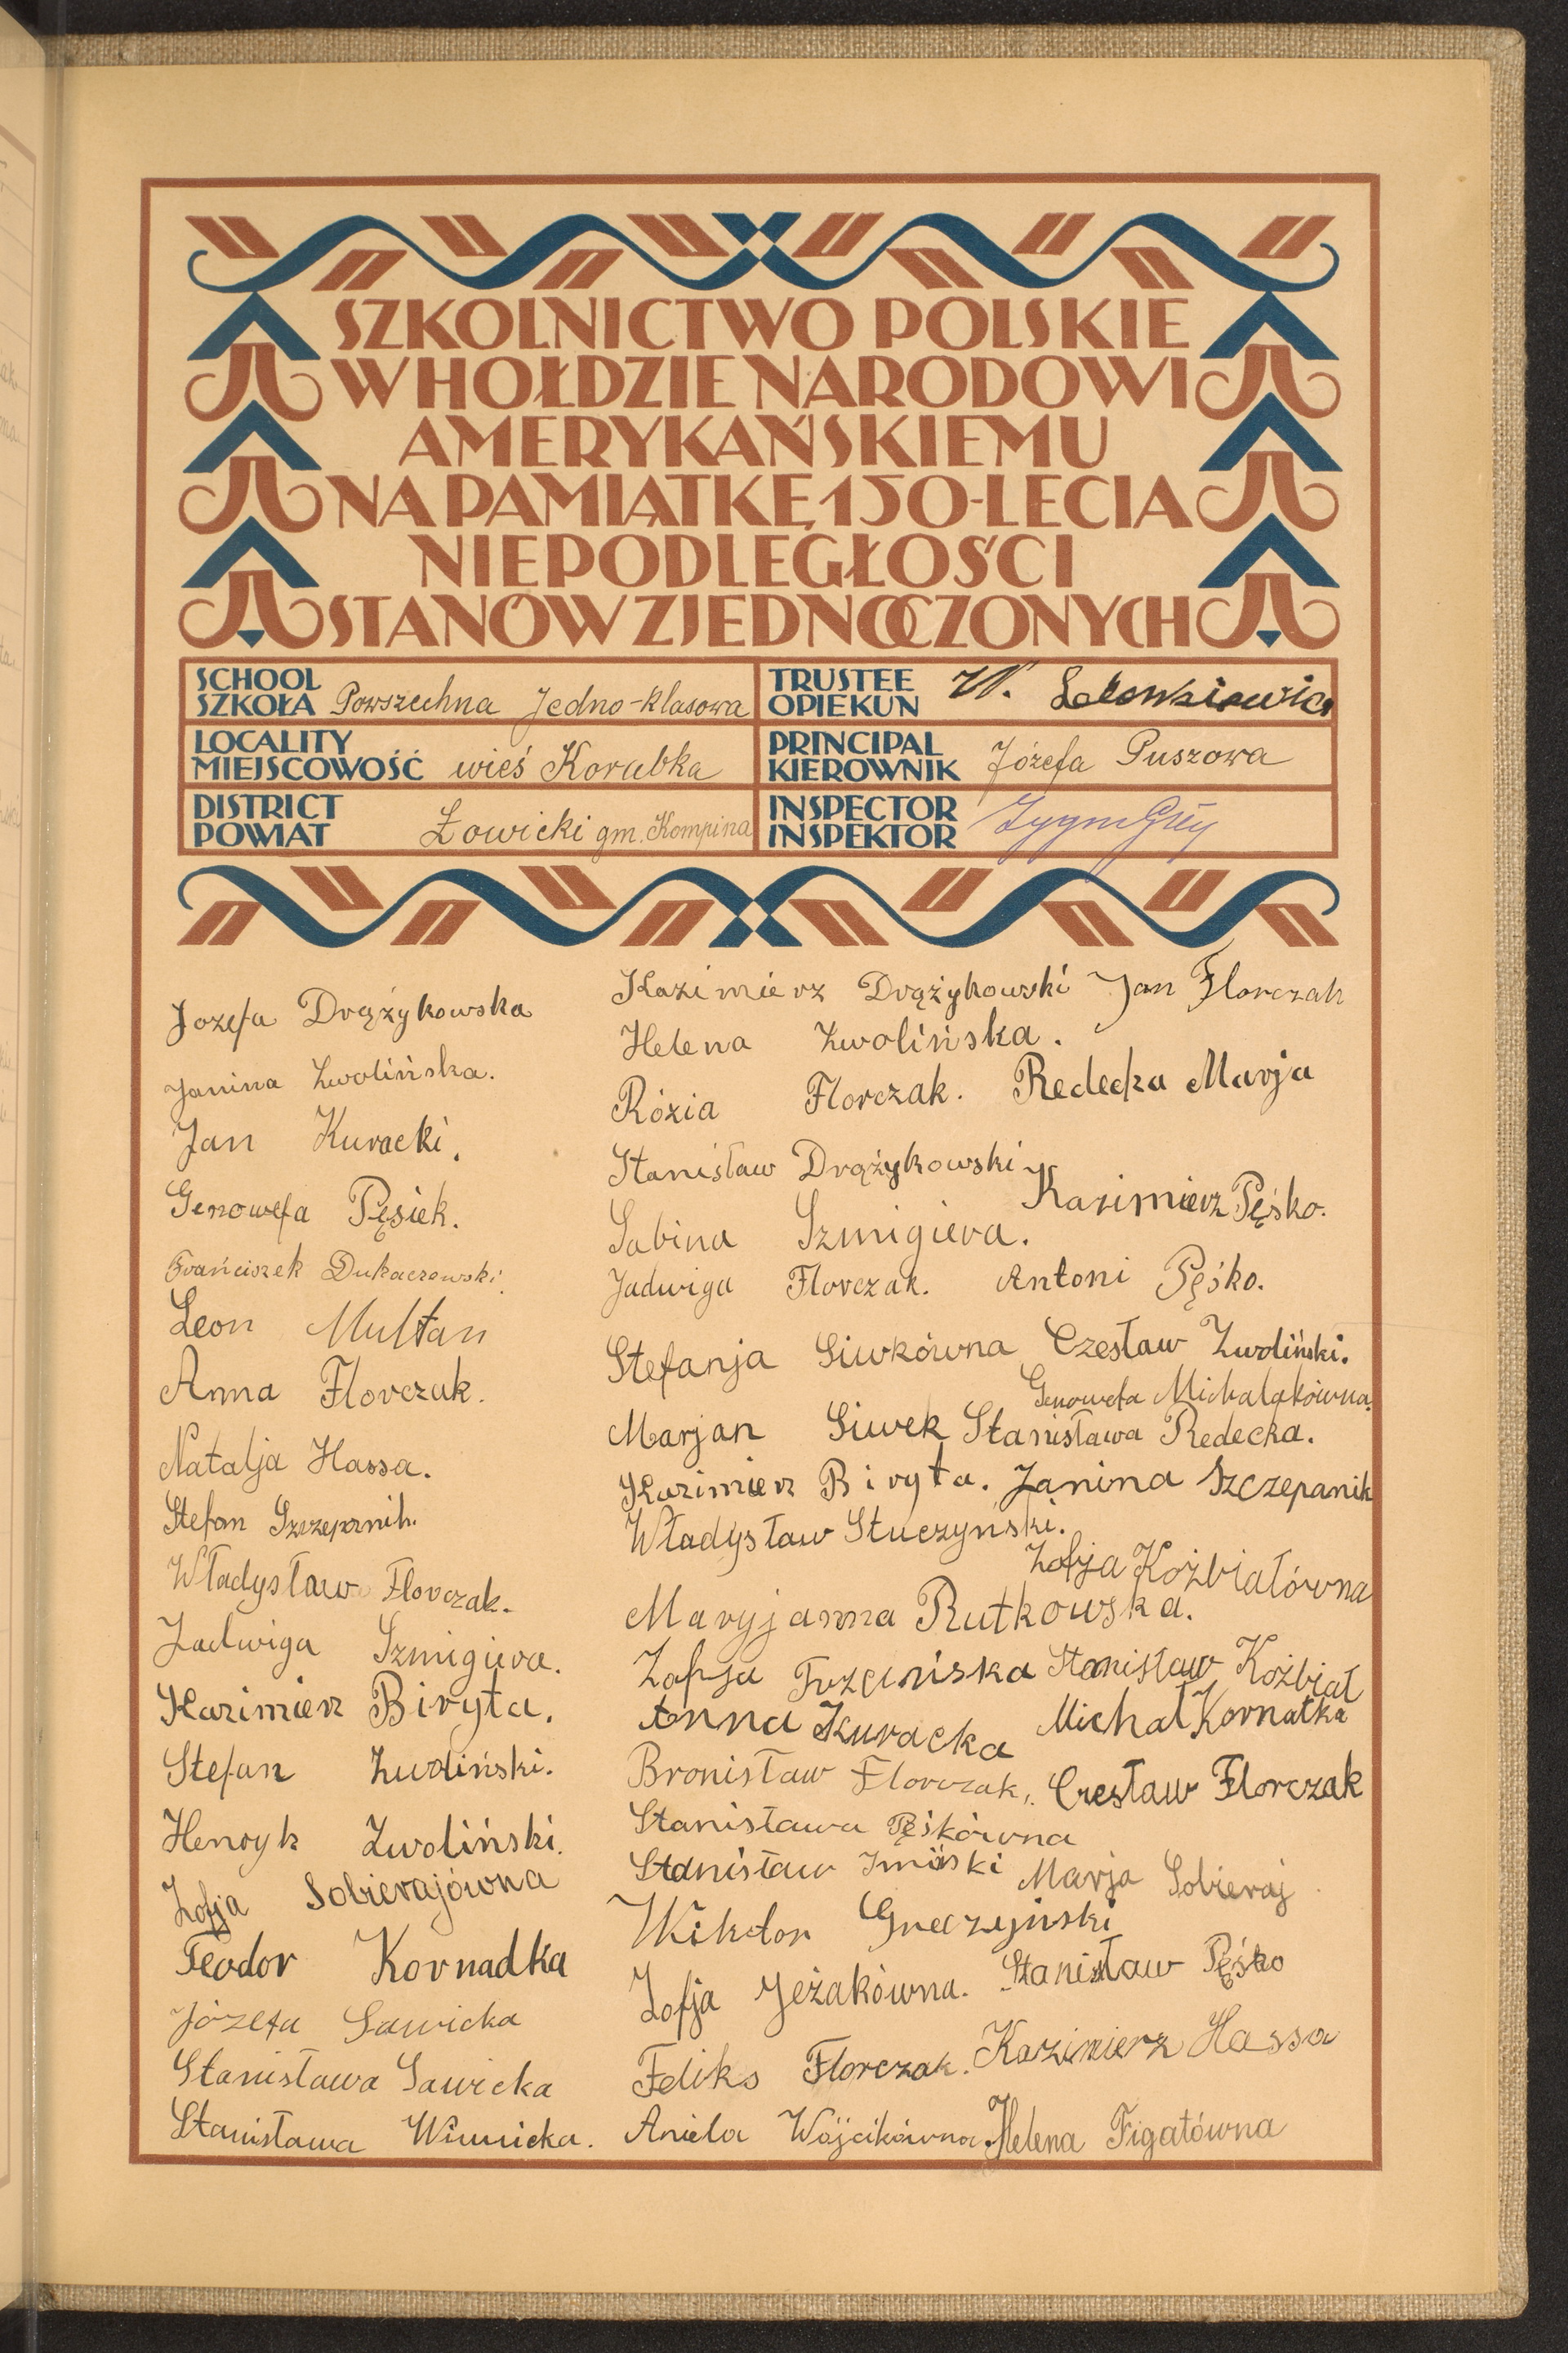 SZKOLNICTWO POLSKIE
W HOŁDZIE NARODOWI
AMERYKAŃSKIEMU
NA PAMIĄTKĘ 150-LECIA
NIEPODLEGŁOŚCI
STANÓW ZJEDNOCZONYCH
SCHOOL
SZKOŁA Powszechna Jedno-klasowa
TRUSTEE
OPIEKUN W.
LOCALITY
MIEJSCOWOŚĆ wieś Korabka
PRINCIPAL
KIEROWNIK Józefa Puszowa
DISTRICT
POWIAT Łowicki gm. Kompina
INSPECTOR
INSPEKTOR
Jozefa Drążykowska
Janina Zwolińska.
Jan Kuracki.
Genowefa Pęsiek.
Frańciszek Dukaczowski.
Leon Multan
Anna Florczak.
Natalja Hassa.
Stefan Szczepanik.
Władysław Florczak.
Jadwiga Szmigiera.
Kazimierz Biryta.
Stefan Zwoliński.
Henryk Zwoliński.
Zofja Sobierajówna
Teodor Kornadka
Józefa Sawicka
Stanisława Sawicka
Stanisława Winnicka.
Kazimierz Drążykowski Jan Florczak
Helena Zwolińska.
Rózia Florczak. Redecka Marja
Stanisław Drążykowski
Kazimierz Pęśko.
Sabina Szmigiera.
Jadwiga Florczak. Antoni Pęśko.
Stefanja Siwkówna Czesław Zwoliński.
Genowefa Michalakówna.
Marjan Siwek Stanisława Redecka.
Kazimierz Biryta. Janina Szczepanik
Władysław Stuczynski.
Zofja Koźbiałówna
Maryjanna Rutkowska.
Zofja Trzcinska Stanisław Koźbiał
Anna Kuracka Michał Kornatka
Bronisław Florczak, Czesław Florczak
Stanisława Pęśkówna
Stanisław Marja Sobieraj
Wiktor Greczyński
Zofja Jeżakówna. Stanisław Pęśko
Feliks Florczak. Kazimierz Hassa
Aniela Wójcikówna. Helena Figatówna